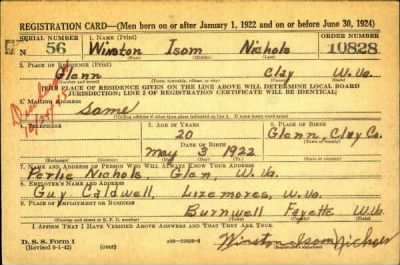 REGISTRATION CARD—(Men born on or after January 1, 1922 and on or before June 30, 1924)
SERIAL NUMBER 1. NAME (Print) ORDER NUMBER
N 56 Winston Isom Nichols 10828
(First) (Middle) (Last)
2. PLACE OF RESIDENCE (Print)
Glenn Clay W.Va.
(Town, township, village, or city) (County) (State)
[THE PLACE OF RESIDENCE GIVEN ON THE LINE ABOVE WILL DETERMINE LOCAL BOARD
JURISDICTION; LINE 2 OF REGISTRATION CERTIFICATE WILL BE IDENTICAL]
3. MAILING ADDRESS
Same
[Mailing address if other than place indicated on line 2. If same insert word same]
4. TELEPHONE 5. AGE IN YEARS 6. PLACE OF BIRTH
20 Glenn, Clay Co.
DATE OF BIRTH (Town or county)
May 3 1922 W.Va.
(Exchange) (Number) (Mo.) (Day) (Yr.) (State or country)
7. NAME AND ADDRESS OF PERSON WHO WILL ALWAYS KNOW YOUR ADDRESS
Perlie Nichols, Glen, W.Va.
8. EMPLOYER'S NAME AND ADDRESS
Guy Caldwell, Lizemores, W.Va.
9. PLACE OF EMPLOYMENT OR BUSINESS
Burnwell Fayette W.Va.
(Number and street or R. F. D. number) (Town) (County) (State)
I AFFIRM THAT I HAVE VERIFIED ABOVE ANSWERS AND THAT THEY ARE TRUE.
D. S. S. Form 1
(Revised 6-1-42) (over) Winston Isom Nichols